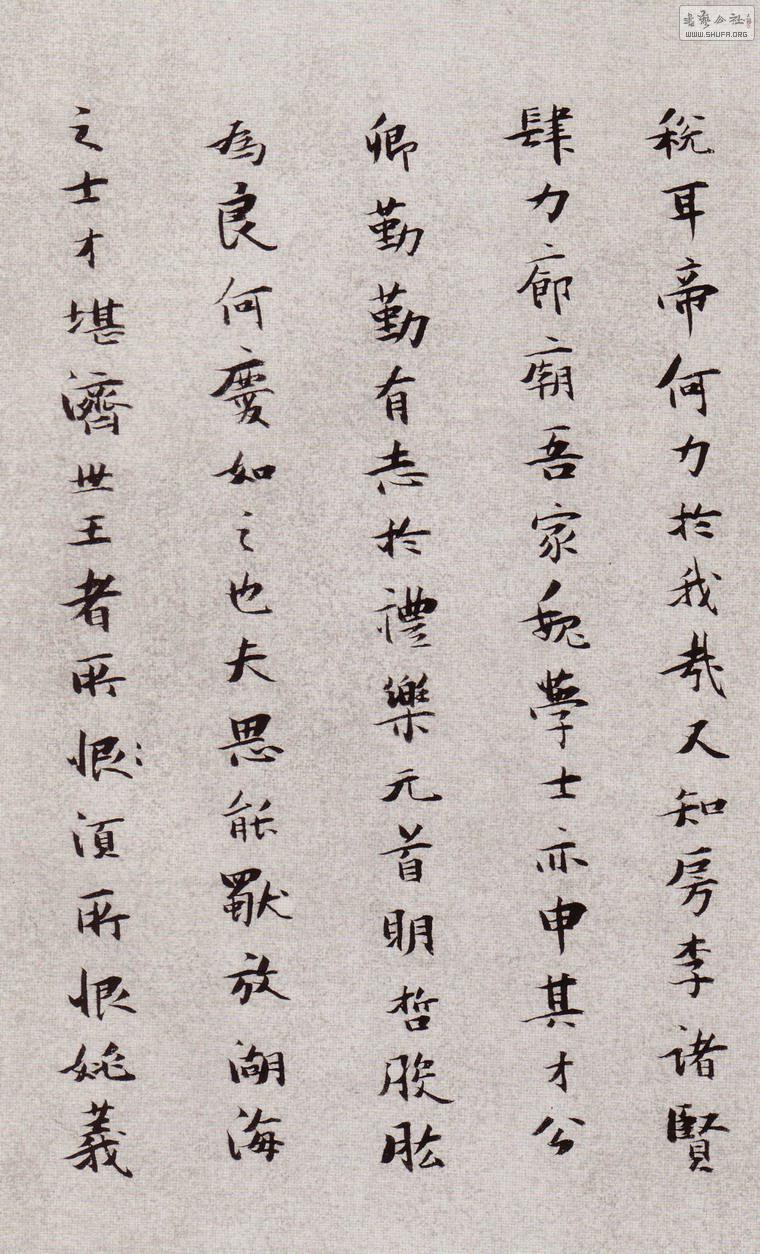 稅耳帝何力於我哉又知房李諸賢
肆力廊廟吾家魏學士亦申其才公
卿勤勤有志於禮樂元首明哲股肱
為良何慶如之也夫思能放湖海
之士才堪濟世王者所恨須所恨姚義
書藝公社
WWW.SHUFA.ORG